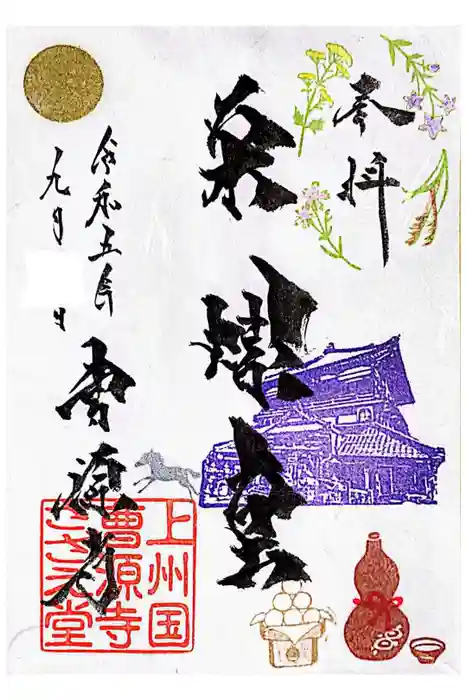 奉拝
栄螺堂
令和五年
九月 日
曹源寺
上州国
曹源寺
さざえ堂